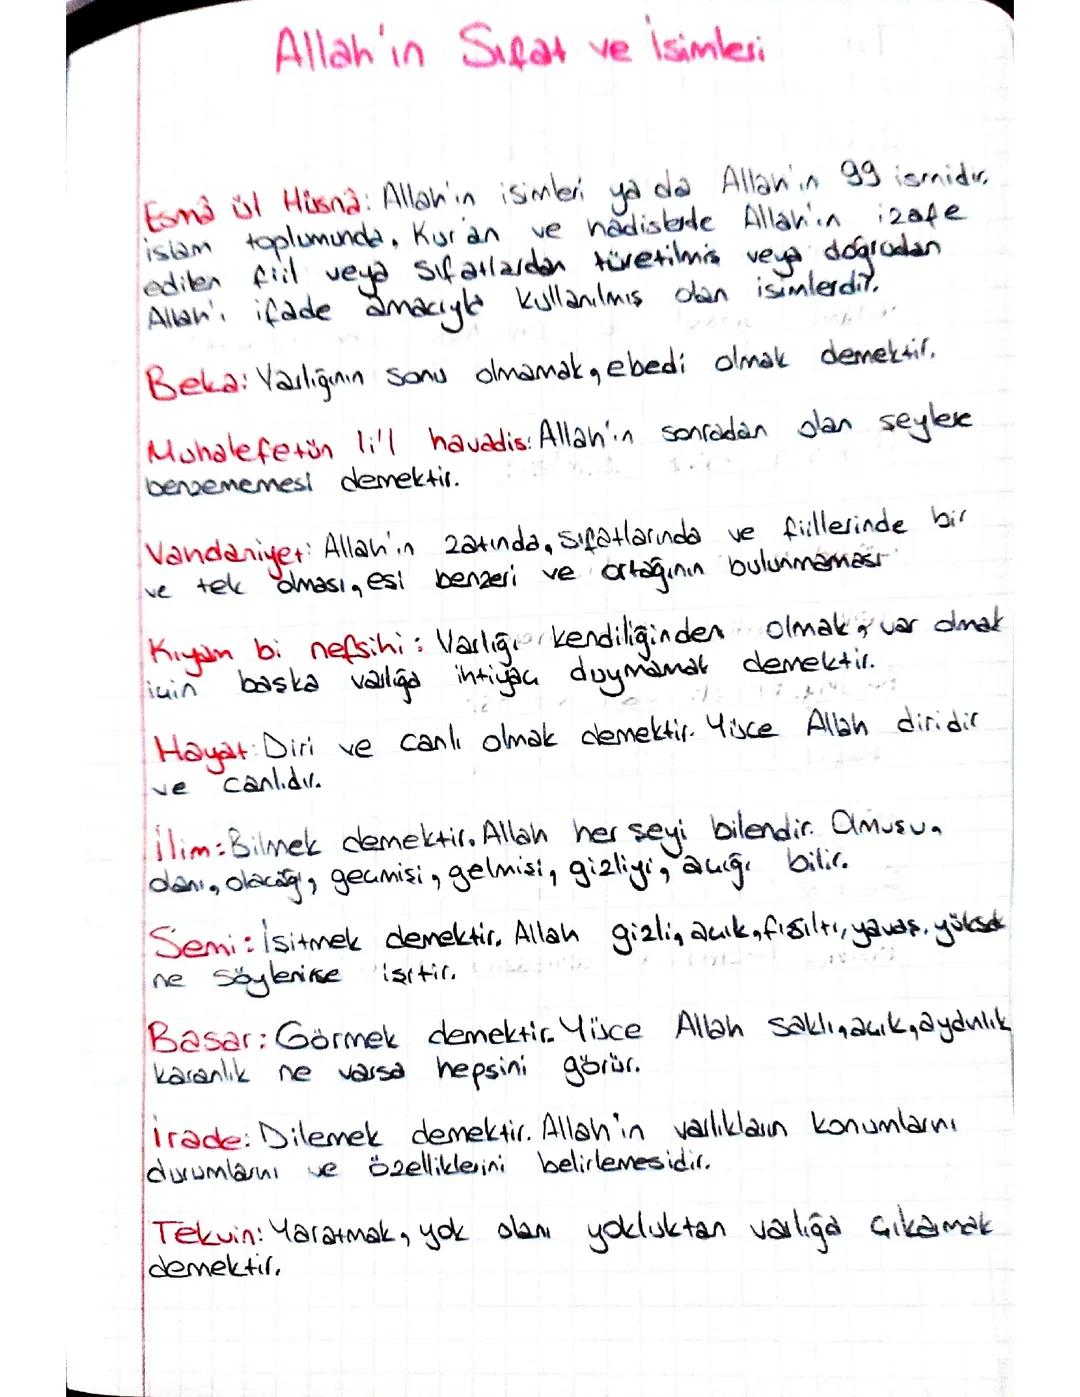 Allah'ın Sıfat ve İsimleri
Esmâ ül Hüsnâ: Allah'ın isimleri ya da Allah'ın 99 ismidir.
islam toplumunda, Kur'an ve hadislerde Allah'ın izafe
edilen fiil veya sıfatlardan türetilmiş veya doğrudan
Allah'ı ifade amacıyla kullanılmış olan isimlerdir.
Beka: Varlığının sonu olmamak, ebedi olmak demektir.
Muhalefetün li'l havadis: Allah'ın sonradan olan şeylere
benzememesi demektir.
Vahdaniyet: Allah'ın zatında, sıfatlarında ve fiillerinde bir
ve tek olması, eşi benzeri ve ortağının bulunmaması
Kıyam bi nefsihi: Varlığı kendiliğinden olmak, var olmak
için başka varlığa ihtiyacı duymamak demektir.
Hayat: Diri ve canlı olmak demektir. Yüce Allah diridir
ve canlıdır.
İlim: Bilmek demektir. Allah her şeyi bilendir. Olmuşu,
olanı, olacağı, geçmişi, gelmişi, gizliyi, açığı bilir.
Semi: İşitmek demektir. Allah gizli, açık, fısıltı, yavaş, yüksek
ne söylenirse işitir.
Basar: Görmek demektir. Yüce Allah saklı, açık, aydınlık
karanlık ne varsa hepsini görür.
İrade: Dilemek demektir. Allah'ın varlıkların konumlarını
durumlarını ve özelliklerini belirlemesidir.
Tekvin: Yaratmak, yok olanı yokluktan varlığa çıkarmak
demektir.